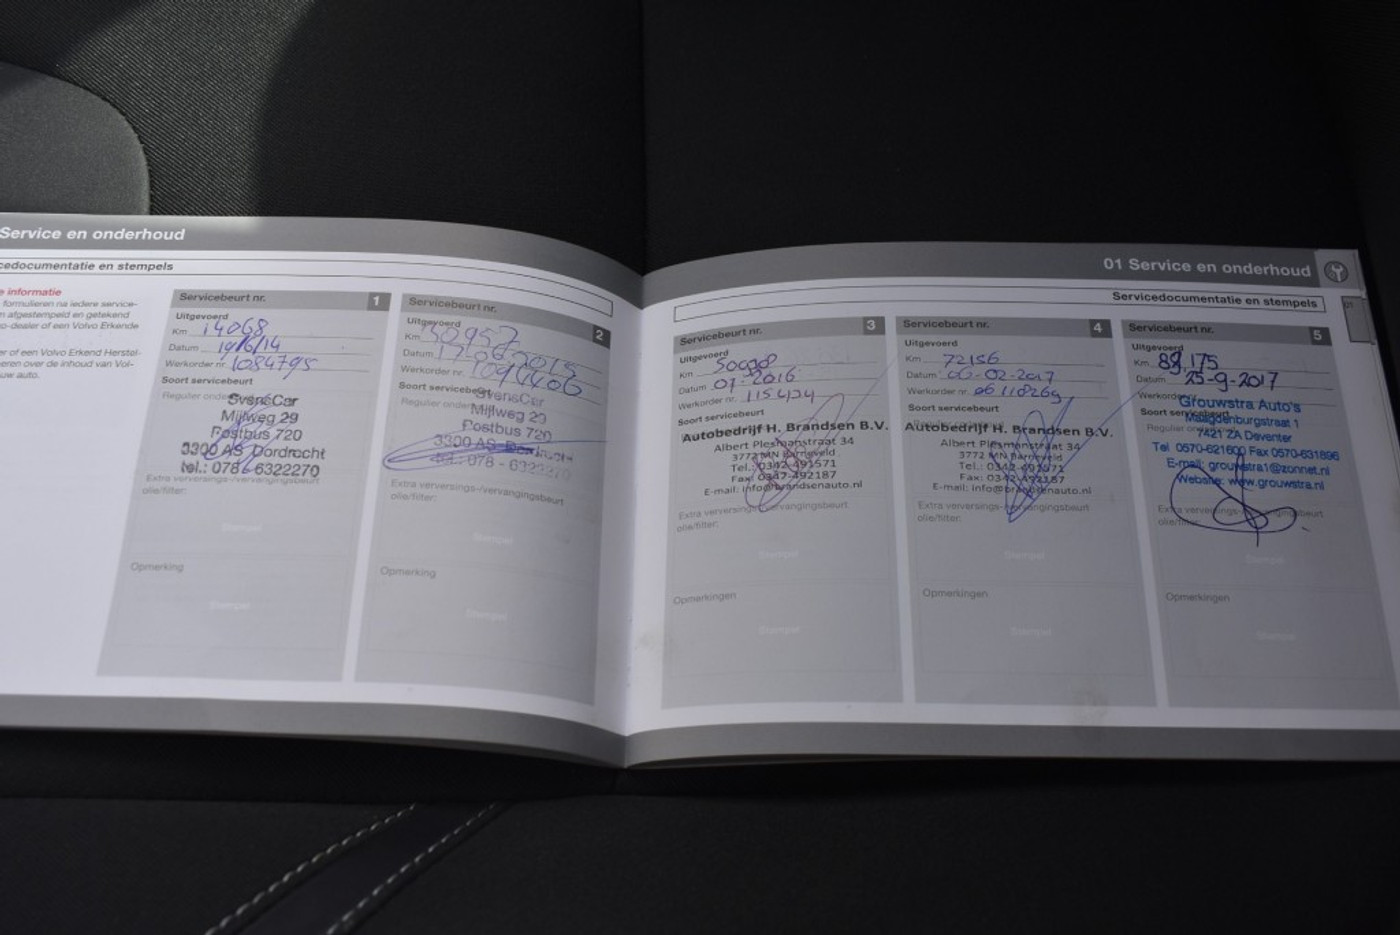 Service en onderhoud
cedocumentatie en stempels
e informatie
formulieren na iedere service-
n afgestempeld en getekend
o-dealer of een Volvo Erkende
er of een Volvo Erkend Herstel-
eren over de inhoud van Vol-
uw auto.
Servicebeurt nr. 1
Uitgevoerd
Km 14068
Datum 19/6/14
Werkorder nr. 1084795
Soort servicebeurt
Regulier
SvensCar
Mijlweg 29
Postbus 720
3300 AS Dordrecht
tel.: 078 - 6322270
Extra verversings-/vervangingsbeurt
olie/filter:
Stempel
Opmerking
Stempel
Servicebeurt nr. 2
Uitgevoerd
Km
Datum
Werkorder nr. 1094406
Soort servicebeurt
Regulier
SvensCar
Mijlweg 29
Postbus 720
3300 AS Dordrecht
tel.: 078 - 6322270
Extra verversings-/vervangingsbeurt
olie/filter:
Stempel
Opmerking
Stempel
01 Service en onderhoud
Servicedocumentatie en stempels
01
Servicebeurt nr. 3
Uitgevoerd
Km
Datum 07-2016
Werkorder nr. 115434
Soort servicebeurt
Autobedrijf H. Brandsen B.V.
Albert Plesmanstraat 34
3772 MN Barneveld
Tel.: 0342-491571
Fax: 0342-492187
E-mail: info@brandsenauto.nl
Extra verversings-/vervangingsbeurt
olie/filter:
Stempel
Opmerkingen
Stempel
Servicebeurt nr. 4
Uitgevoerd
Km 72156
Datum 06-02-2017
Werkorder nr. 06118269
Soort servicebeurt
Autobedrijf H. Brandsen B.V.
Albert Plesmanstraat 34
3772 MN Barneveld
Tel.: 0342-491571
Fax: 0342-492187
E-mail: info@brandsenauto.nl
Extra verversings-/vervangingsbeurt
olie/filter:
Stempel
Opmerkingen
Stempel
Servicebeurt nr. 5
Uitgevoerd
Km 89.175
Datum 25-9-2017
Werkorder
Soort servicebeurt
Regulier
Grouwstra Auto's
Maagdenburgstraat 1
7421 ZA Deventer
Tel 0570-621600 Fax 0570-631896
E-mail: grouwstra1@zonnet.nl
Website: www.grouwstra.nl
Extra verversings-/vervangingsbeurt
olie/filter:
Stempel
Opmerkingen
Stempel